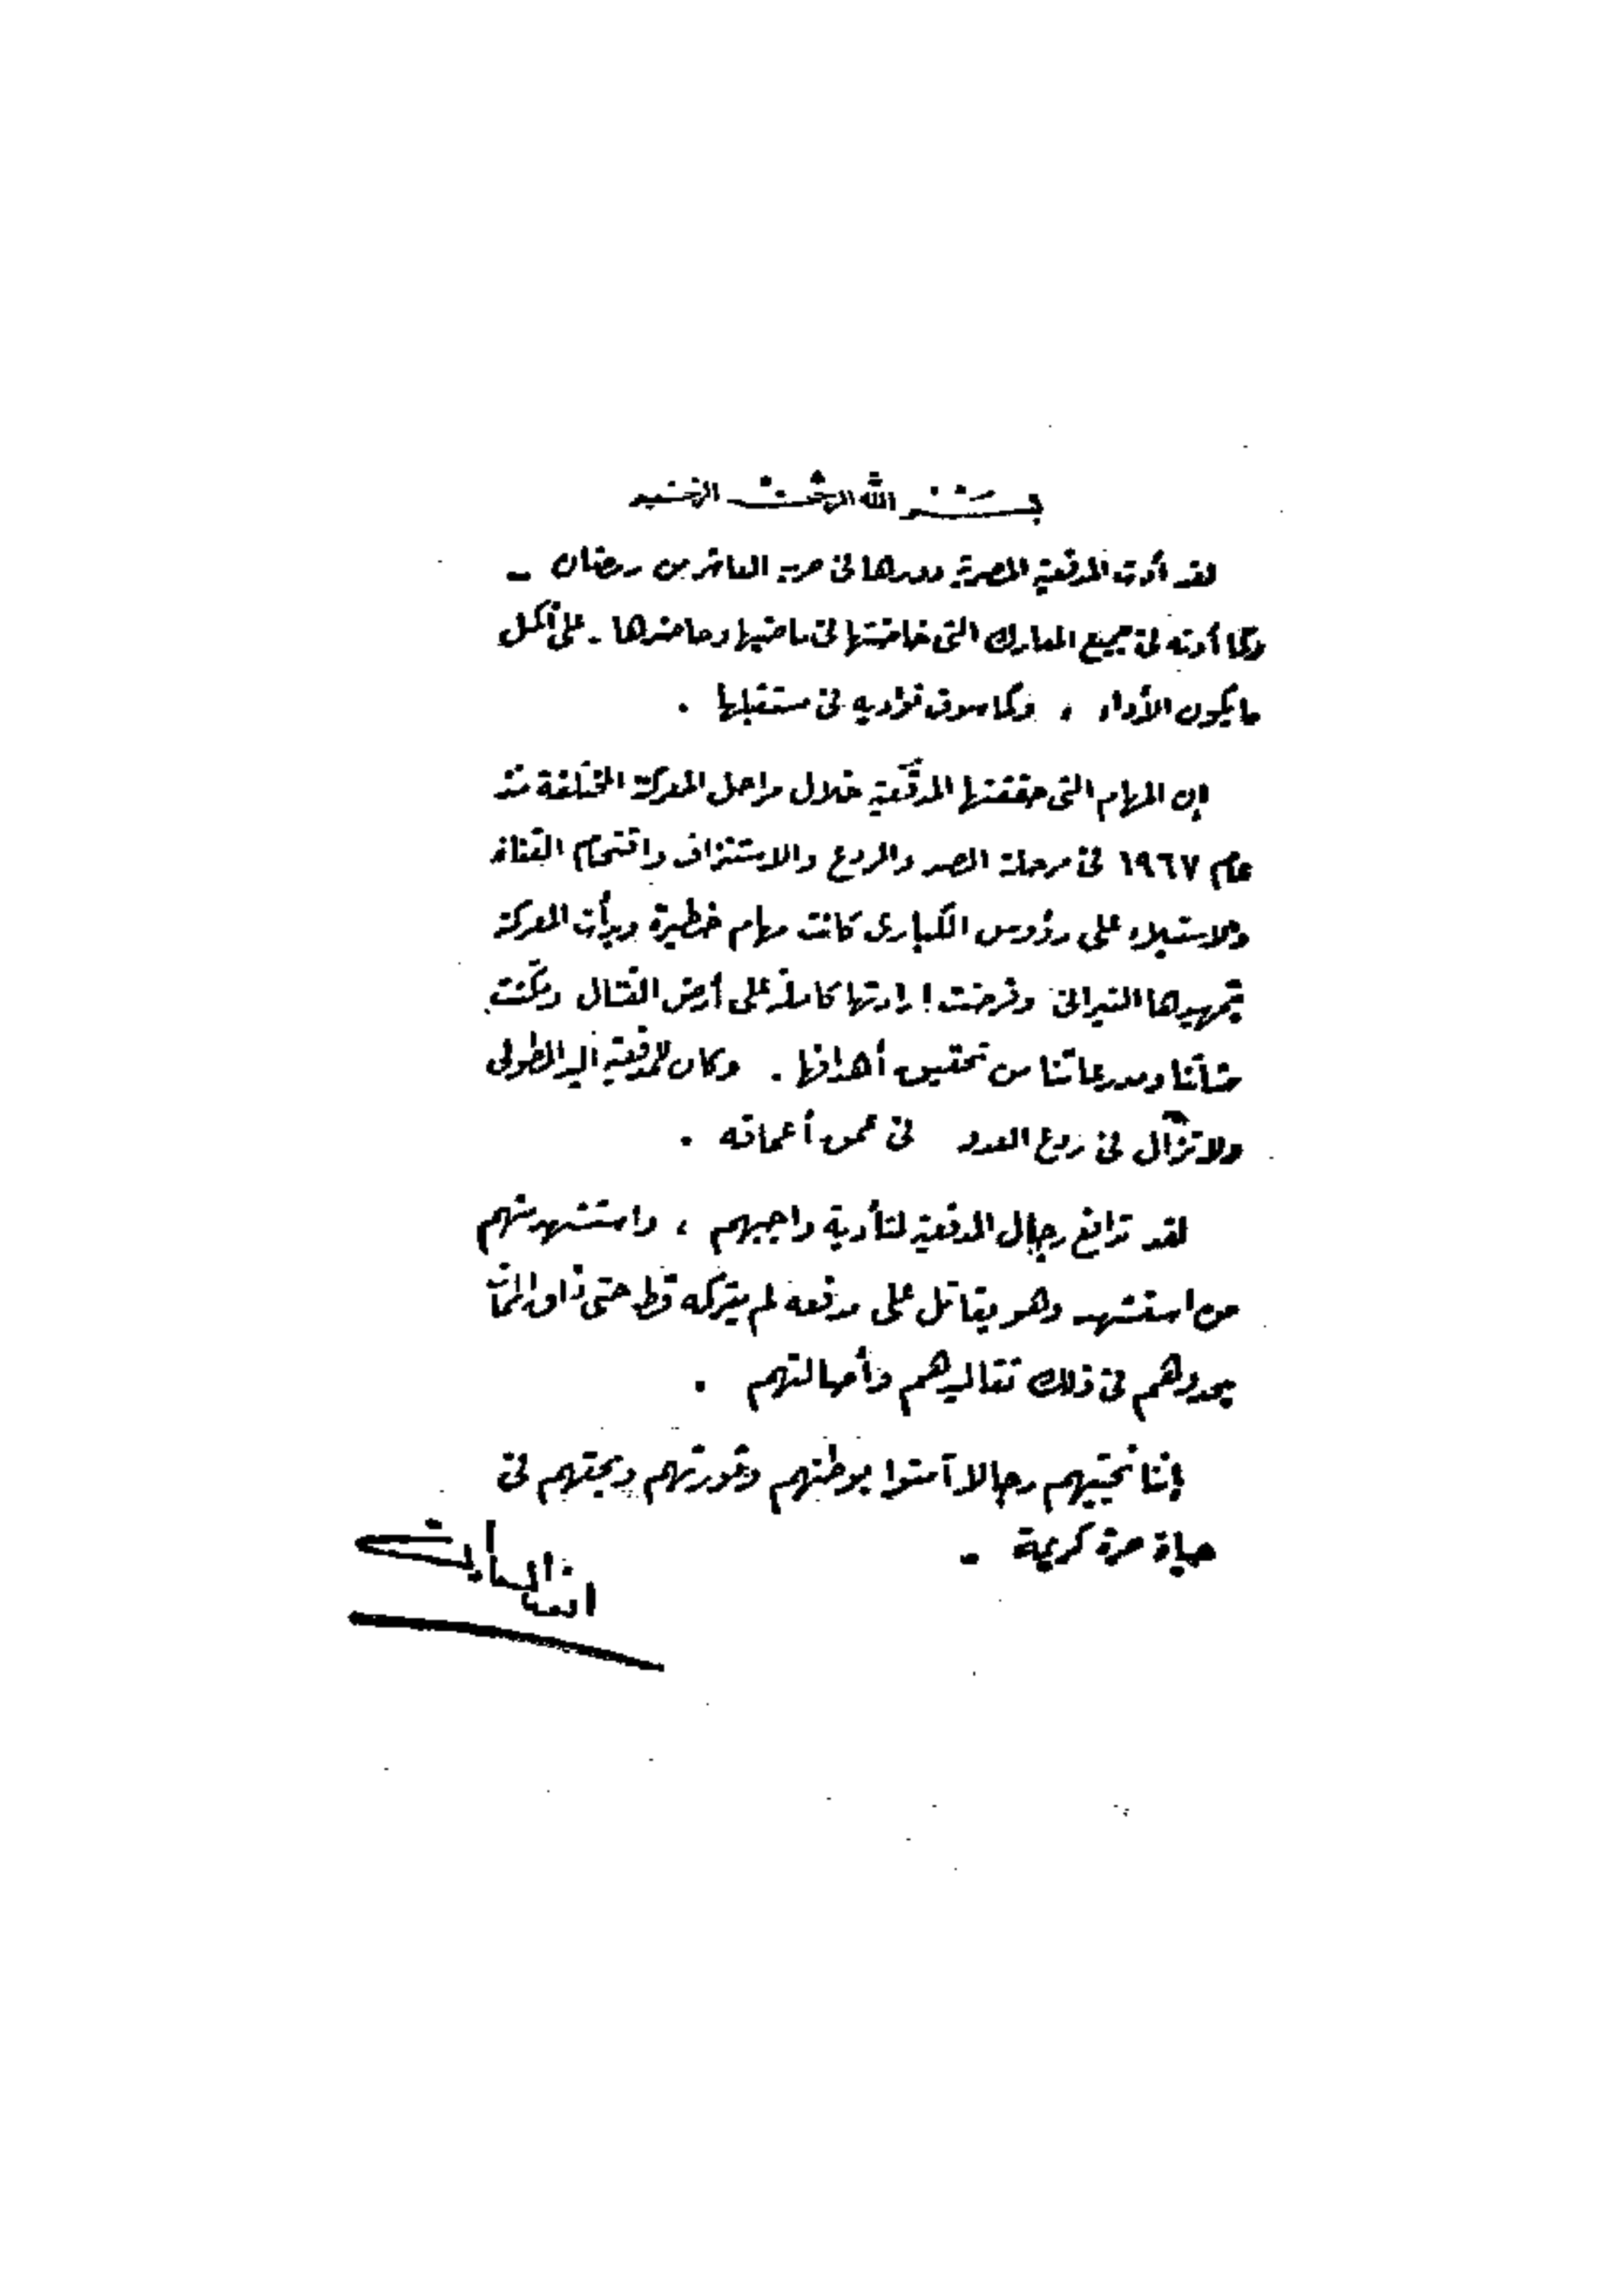 بسم الله الرحمن الرحيم
لقد أدت المدفعية المصرية دورها فى حرب العاشر من رمضان -
وكما أدته فى جميع المعارك التى خاضتها فى ماضيها وحاضرها - على أكمل
ما يكون الأداء ، وكما سوف تؤديه فى مستقبلها .
إن المهام التى حققتها المدفعية خلال مراحل المعركة المختلفة منذ
عام ١٩٦٧ فى مرحلة الصد والردع والاستنزاف واقتحام القناة
والاستيلاء على رؤوس الكبارى كانت مهام خطيرة وبدأت المعركة
بتمهيدها النيرانى وفرضت إرادتها كاملة على أرض القتال ومكنت
مشاتنا ومدرعاتنا من تحقيق أهدافها . وكان للمدفعية اليد الطولى
ولا تزال فى ردع العدو فى عمق أعماقه .
لقد تدافع رجال المدفعية لتأدية واجبهم ، واستشهد منهم
من استشهد وهو يقاتل على مدفعه لم يتركه قط حتى
يحدوهم فى ذلك تقاليدهم وأصالتهم .
إننا نحييهم رجالا آمنوا بوطنهم وثورتهم وبحقهم فى
حياة حرة كريمة -
أنور السادات